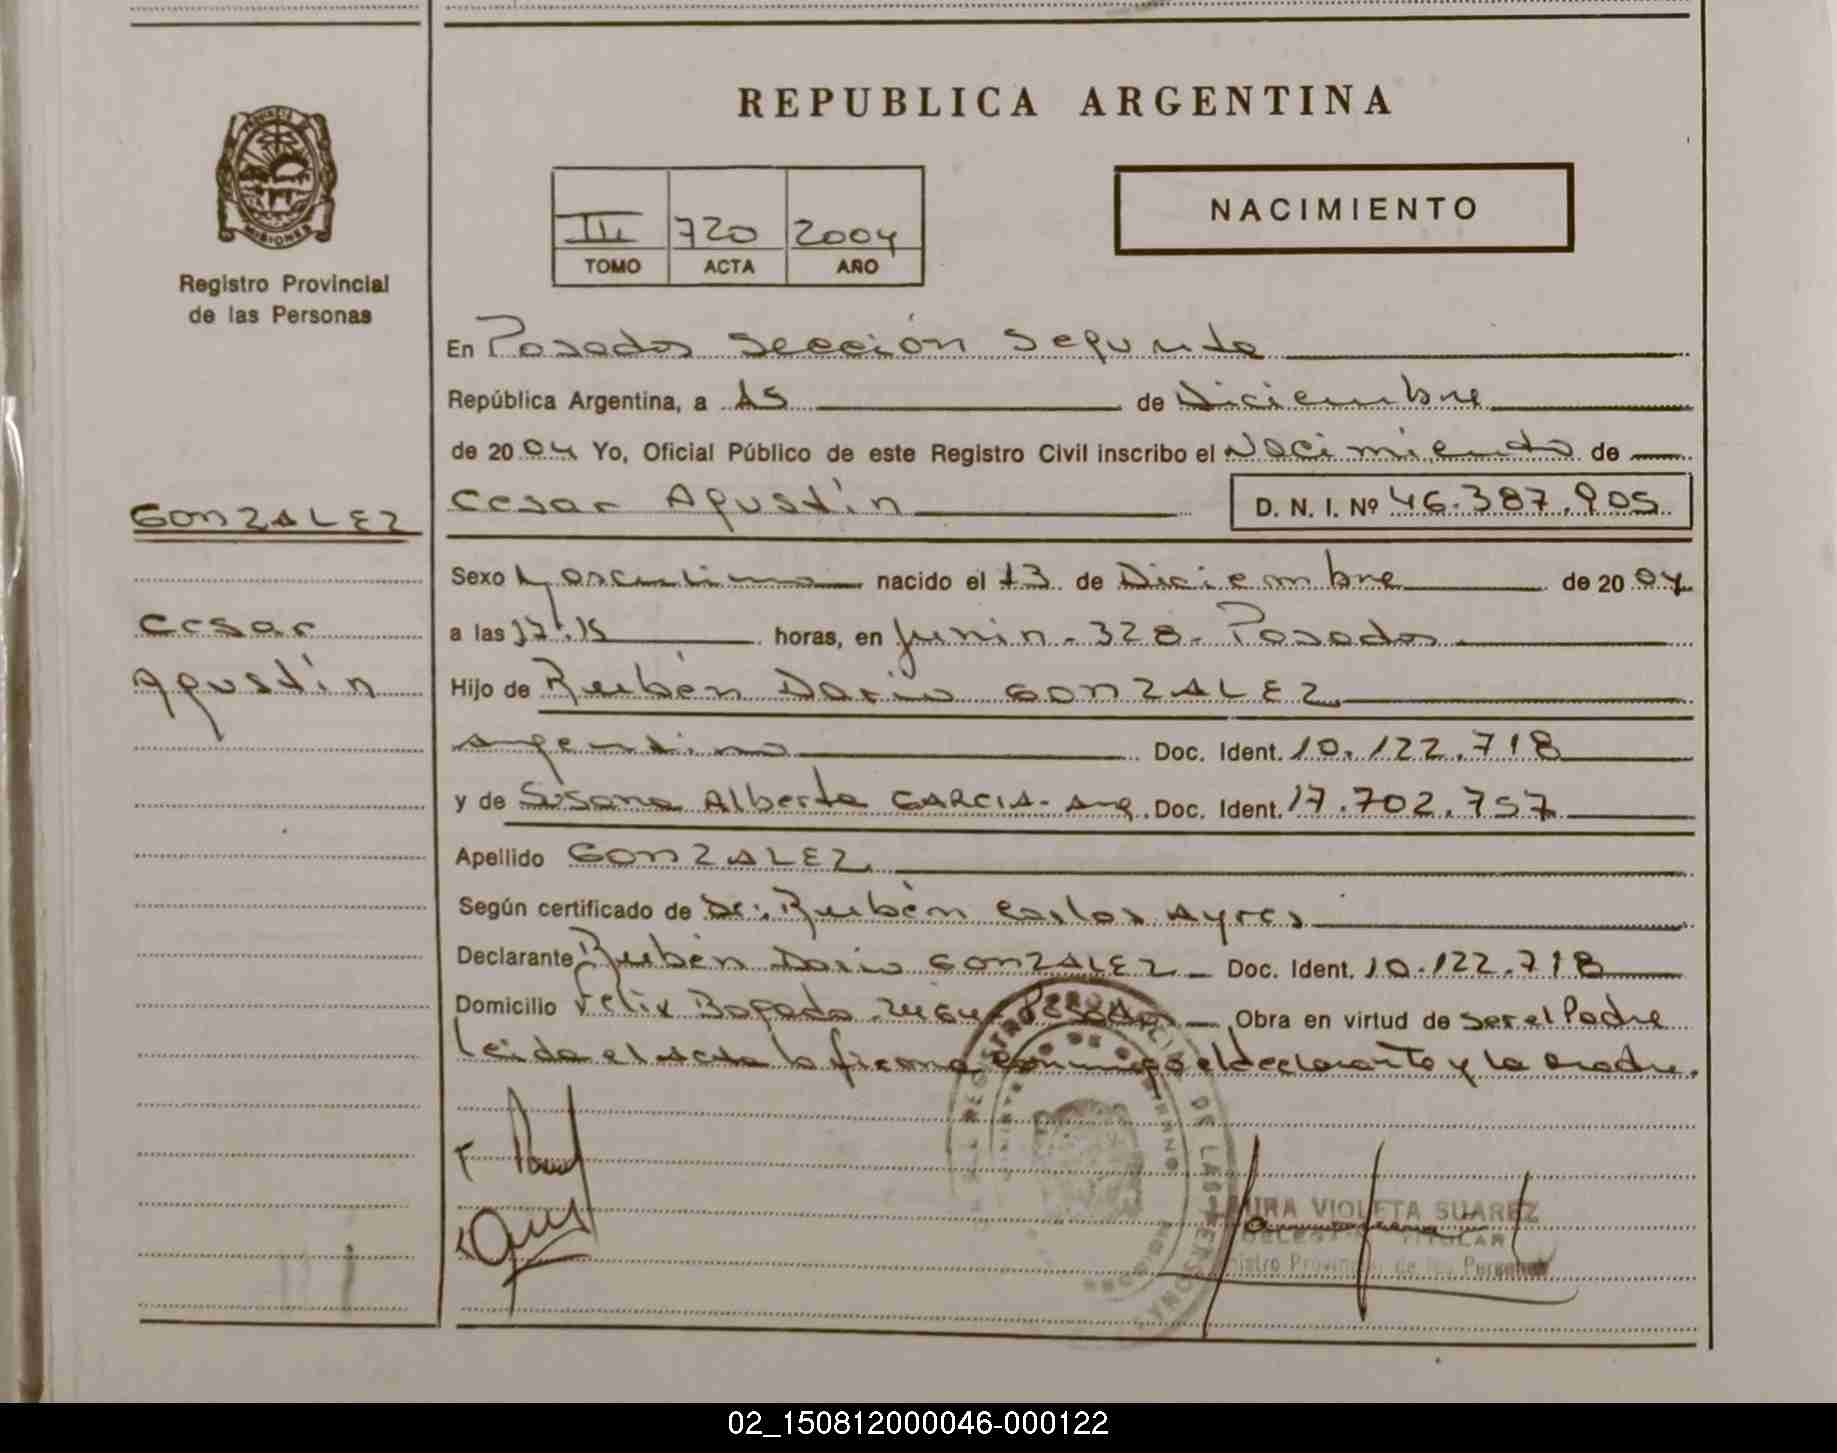 PROVINCIA DE
MISIONES
Registro Provincial
de las Personas
GONZALEZ
Cesar
Agustín
REPUBLICA ARGENTINA
III 720 2004
TOMO ACTA AÑO
NACIMIENTO
En Posadas Sección Segunda
República Argentina, a 15 de Diciembre
de 2004 Yo, Oficial Público de este Registro Civil inscribo el Nacimiento de
Cesar Agustín D. N. I. Nº 46.387.905
Sexo Masculino nacido el 13 de Diciembre de 2004
a las 17:15 horas, en Junin - 328 - Posadas
Hijo de Rubén Dario GONZALEZ
argentino Doc. Ident. 10.122.718
y de Susana Alberta GARCIA - Arg. Doc. Ident. 17.702.757
Apellido GONZALEZ
Según certificado de Dr: Rubén Carlos Ayres
Declarante Rubén Dario GONZALEZ - Doc. Ident. 10.122.718
Domicilio Felix Bogado Obra en virtud de ser el Padre
Leida el acta la firma conmigo el declarante y la madre.
VIOLETA SUAREZ
TITULAR
de las Personas
02_150812000046-000122